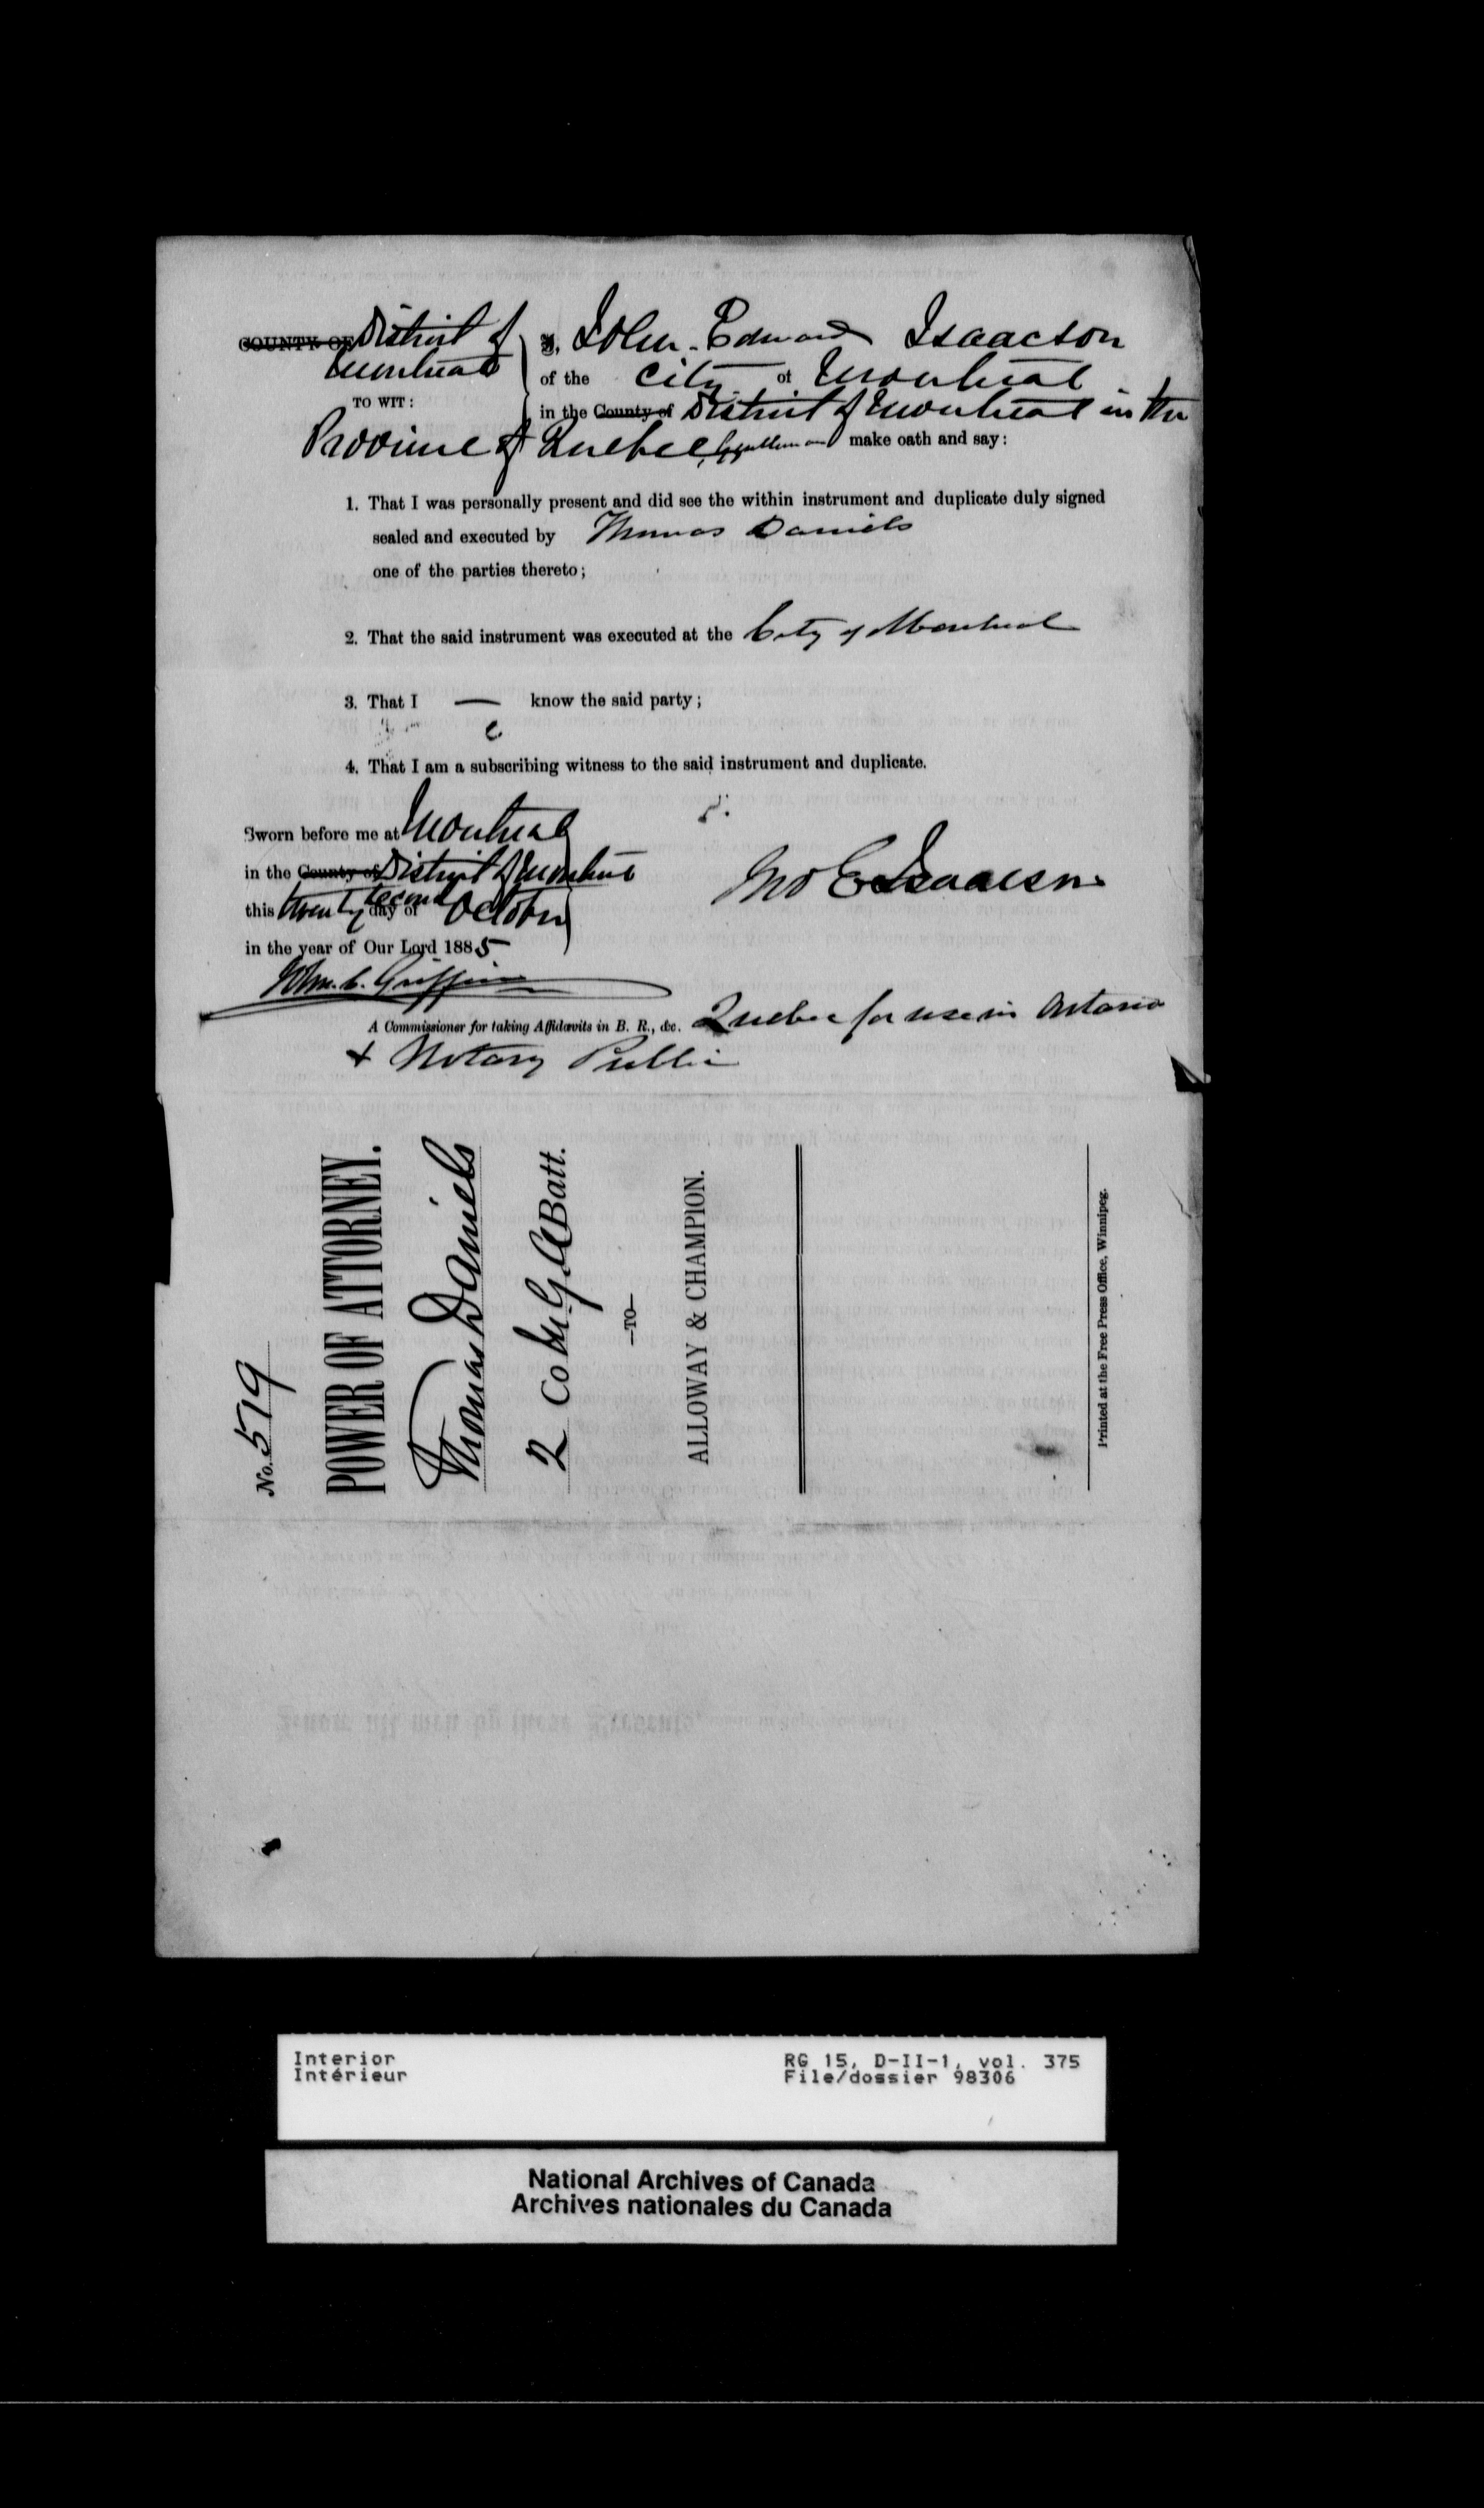 COUNTY OF District of
Montreal
TO WIT:
I, John Edward Isaacson
of the City of Montreal
in the County of District of Montreal in the
Province of Quebec, Gentleman make oath and say:
1. That I was personally present and did see the within instrument and duplicate duly signed
sealed and executed by Thomas Daniels
one of the parties thereto;
2. That the said instrument was executed at the City of Montreal
3. That I — know the said party;
4. That I am a subscribing witness to the said instrument and duplicate.
Sworn before me at Montreal
in the County of District of Montreal
this twenty second day of October
in the year of Our Lord 1885
Jno E Isaacson
John C. Griffin
A Commissioner for taking Affidavits in B. R., &c. Quebec for use in Ontario
& Notary Public
No. 519
POWER OF ATTORNEY.
Thomas Daniels
2 Co M.G.A Batt.
—TO—
ALLOWAY & CHAMPION.
Printed at the Free Press Office, Winnipeg.
Interior
Intérieur
RG 15, D-II-1, vol. 375
File/dossier 98306
National Archives of Canada
Archives nationales du Canada